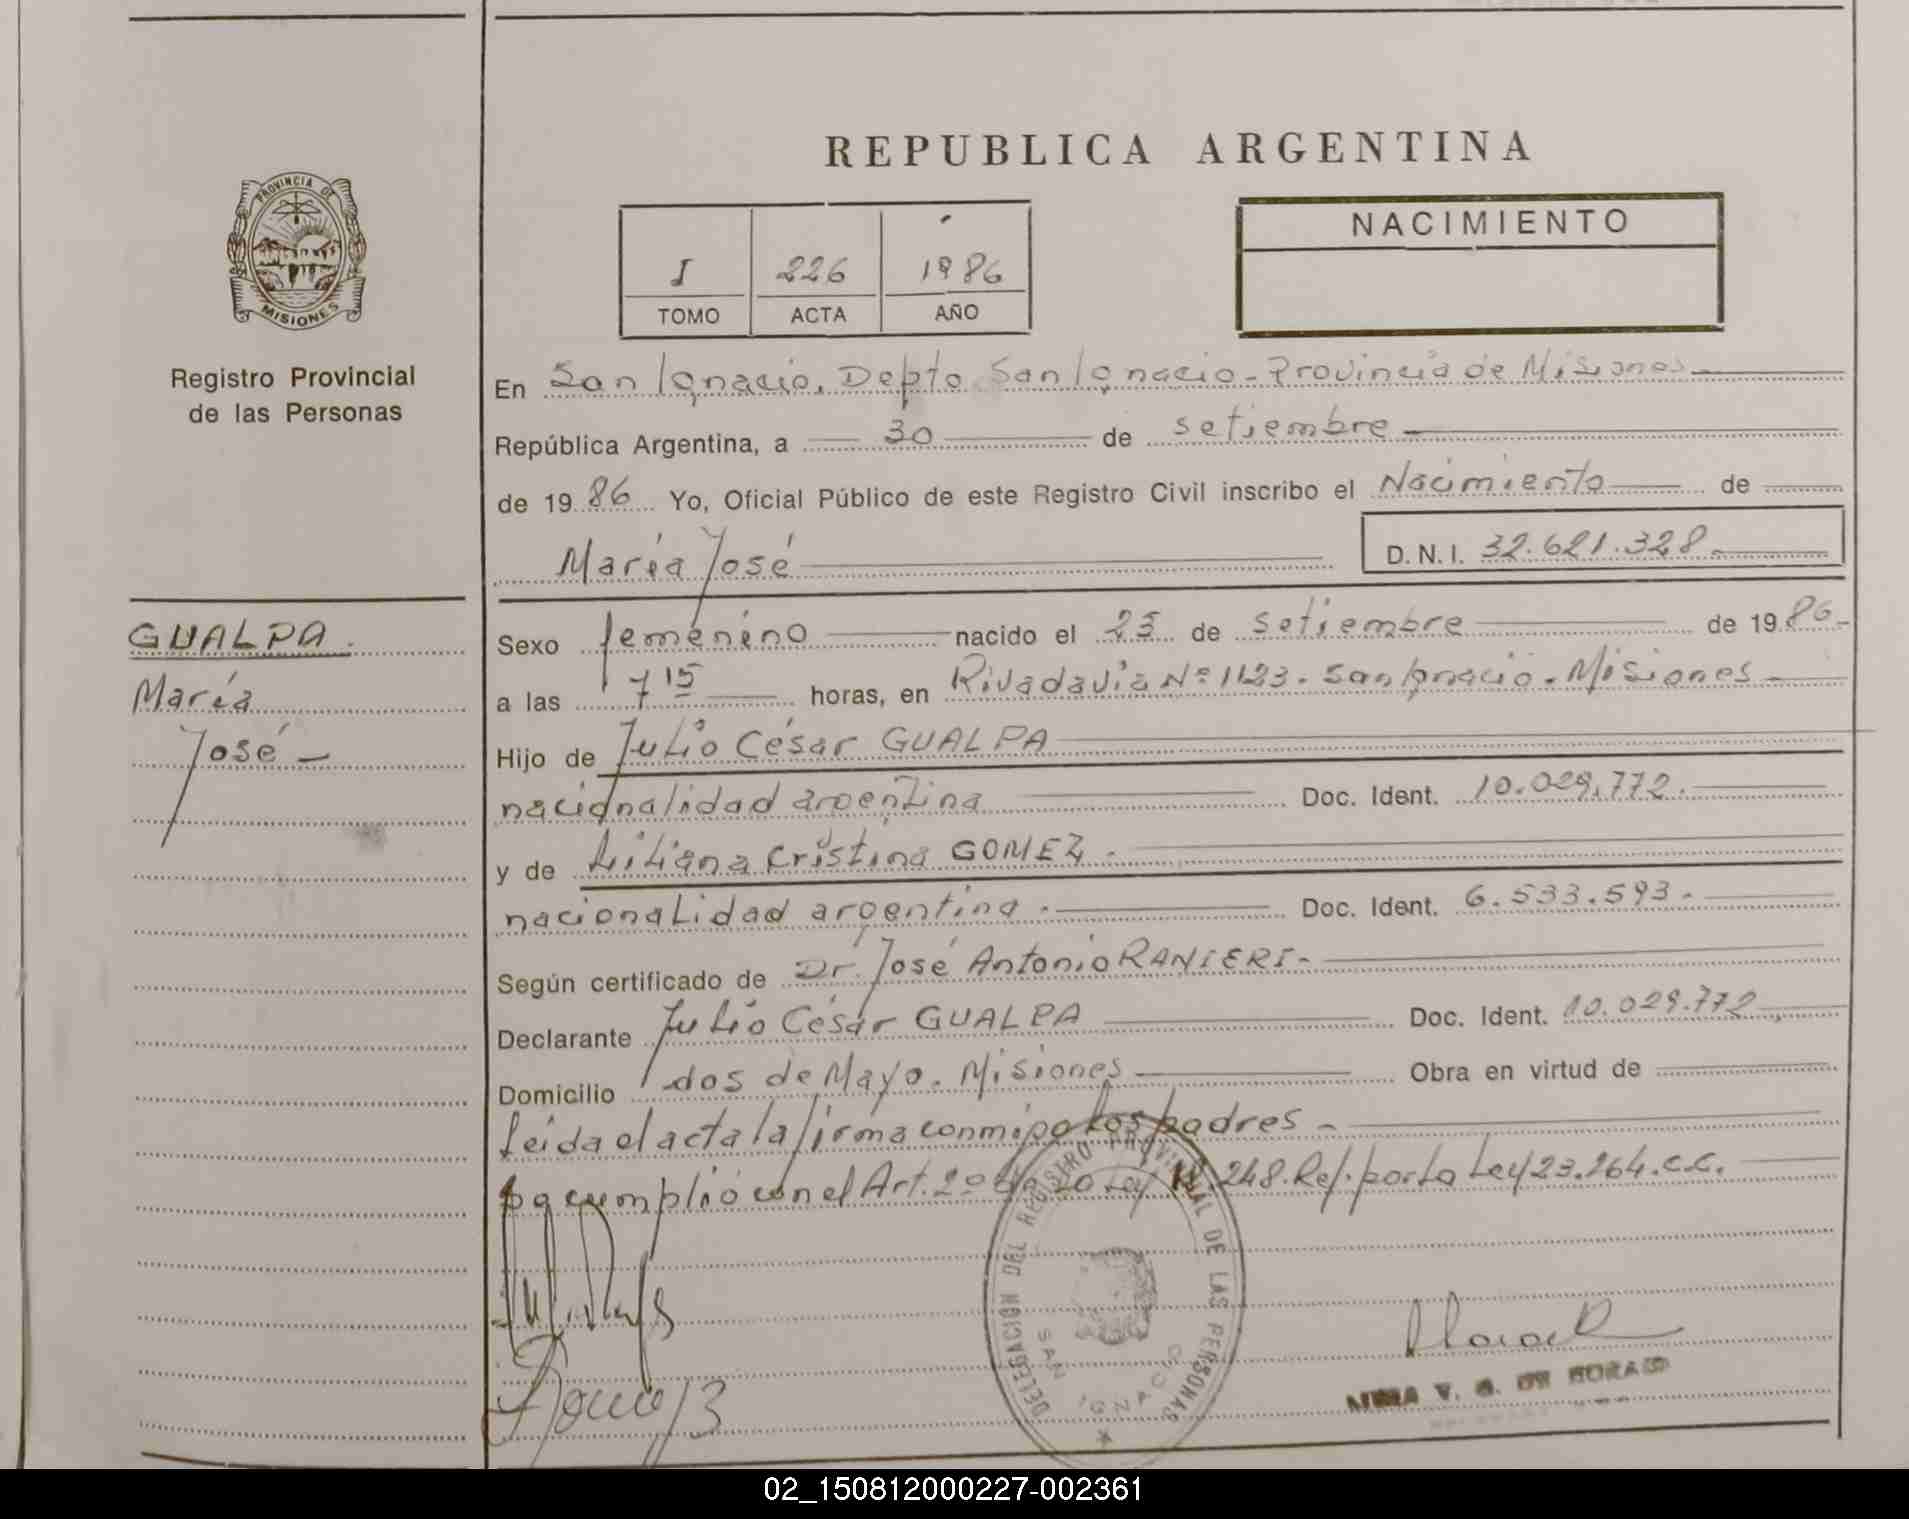 REPUBLICA ARGENTINA
PROVINCIA DE
MISIONES
Registro Provincial
de las Personas
NACIMIENTO
I 226 1986
TOMO ACTA AÑO
En San Ignacio, Depto San Ignacio - Provincia de Misiones
República Argentina, a 30 de setiembre
de 1986 Yo, Oficial Público de este Registro Civil inscribo el Nacimiento de
María José D.N.I. 32.621.328.
GUALPA.
María
José
Sexo femenino nacido el 25 de setiembre de 1986
a las 7 15 horas, en Rivadavia Nº 1123. San Ignacio. Misiones
Hijo de Julio César GUALPA
nacionalidad argentina Doc. Ident. 10.029.772.
y de Liliana Cristina GOMEZ.
nacionalidad argentina. Doc. Ident. 6.533.593.
Según certificado de Dr. José Antonio RANIERI
Declarante Julio César GUALPA Doc. Ident. 10.029.772
Domicilio dos de Mayo. Misiones Obra en virtud de
leída el acta la firma conmigo los padres
se cumplió con el Art. 2º de la Ley 18.248. Ref. por la Ley 23.264. C.C.
DELEGACION DEL REGISTRO PROVINCIAL DE LAS PERSONAS
SAN IGNACIO
02_150812000227-002361